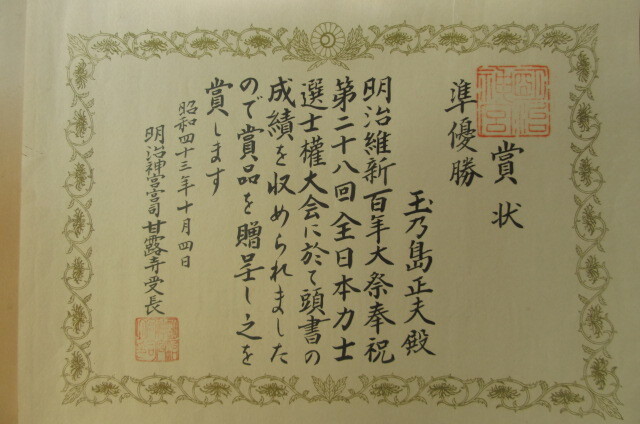 賞状
準優勝
玉乃島正夫殿
明治維新百年大祭奉祝
第二十八回全日本力士
選士權大会に於て頭書の
成績を収められました
ので賞品を贈呈し之を
賞します
昭和四十三年十月四日
明治神宮宮司甘露寺受長